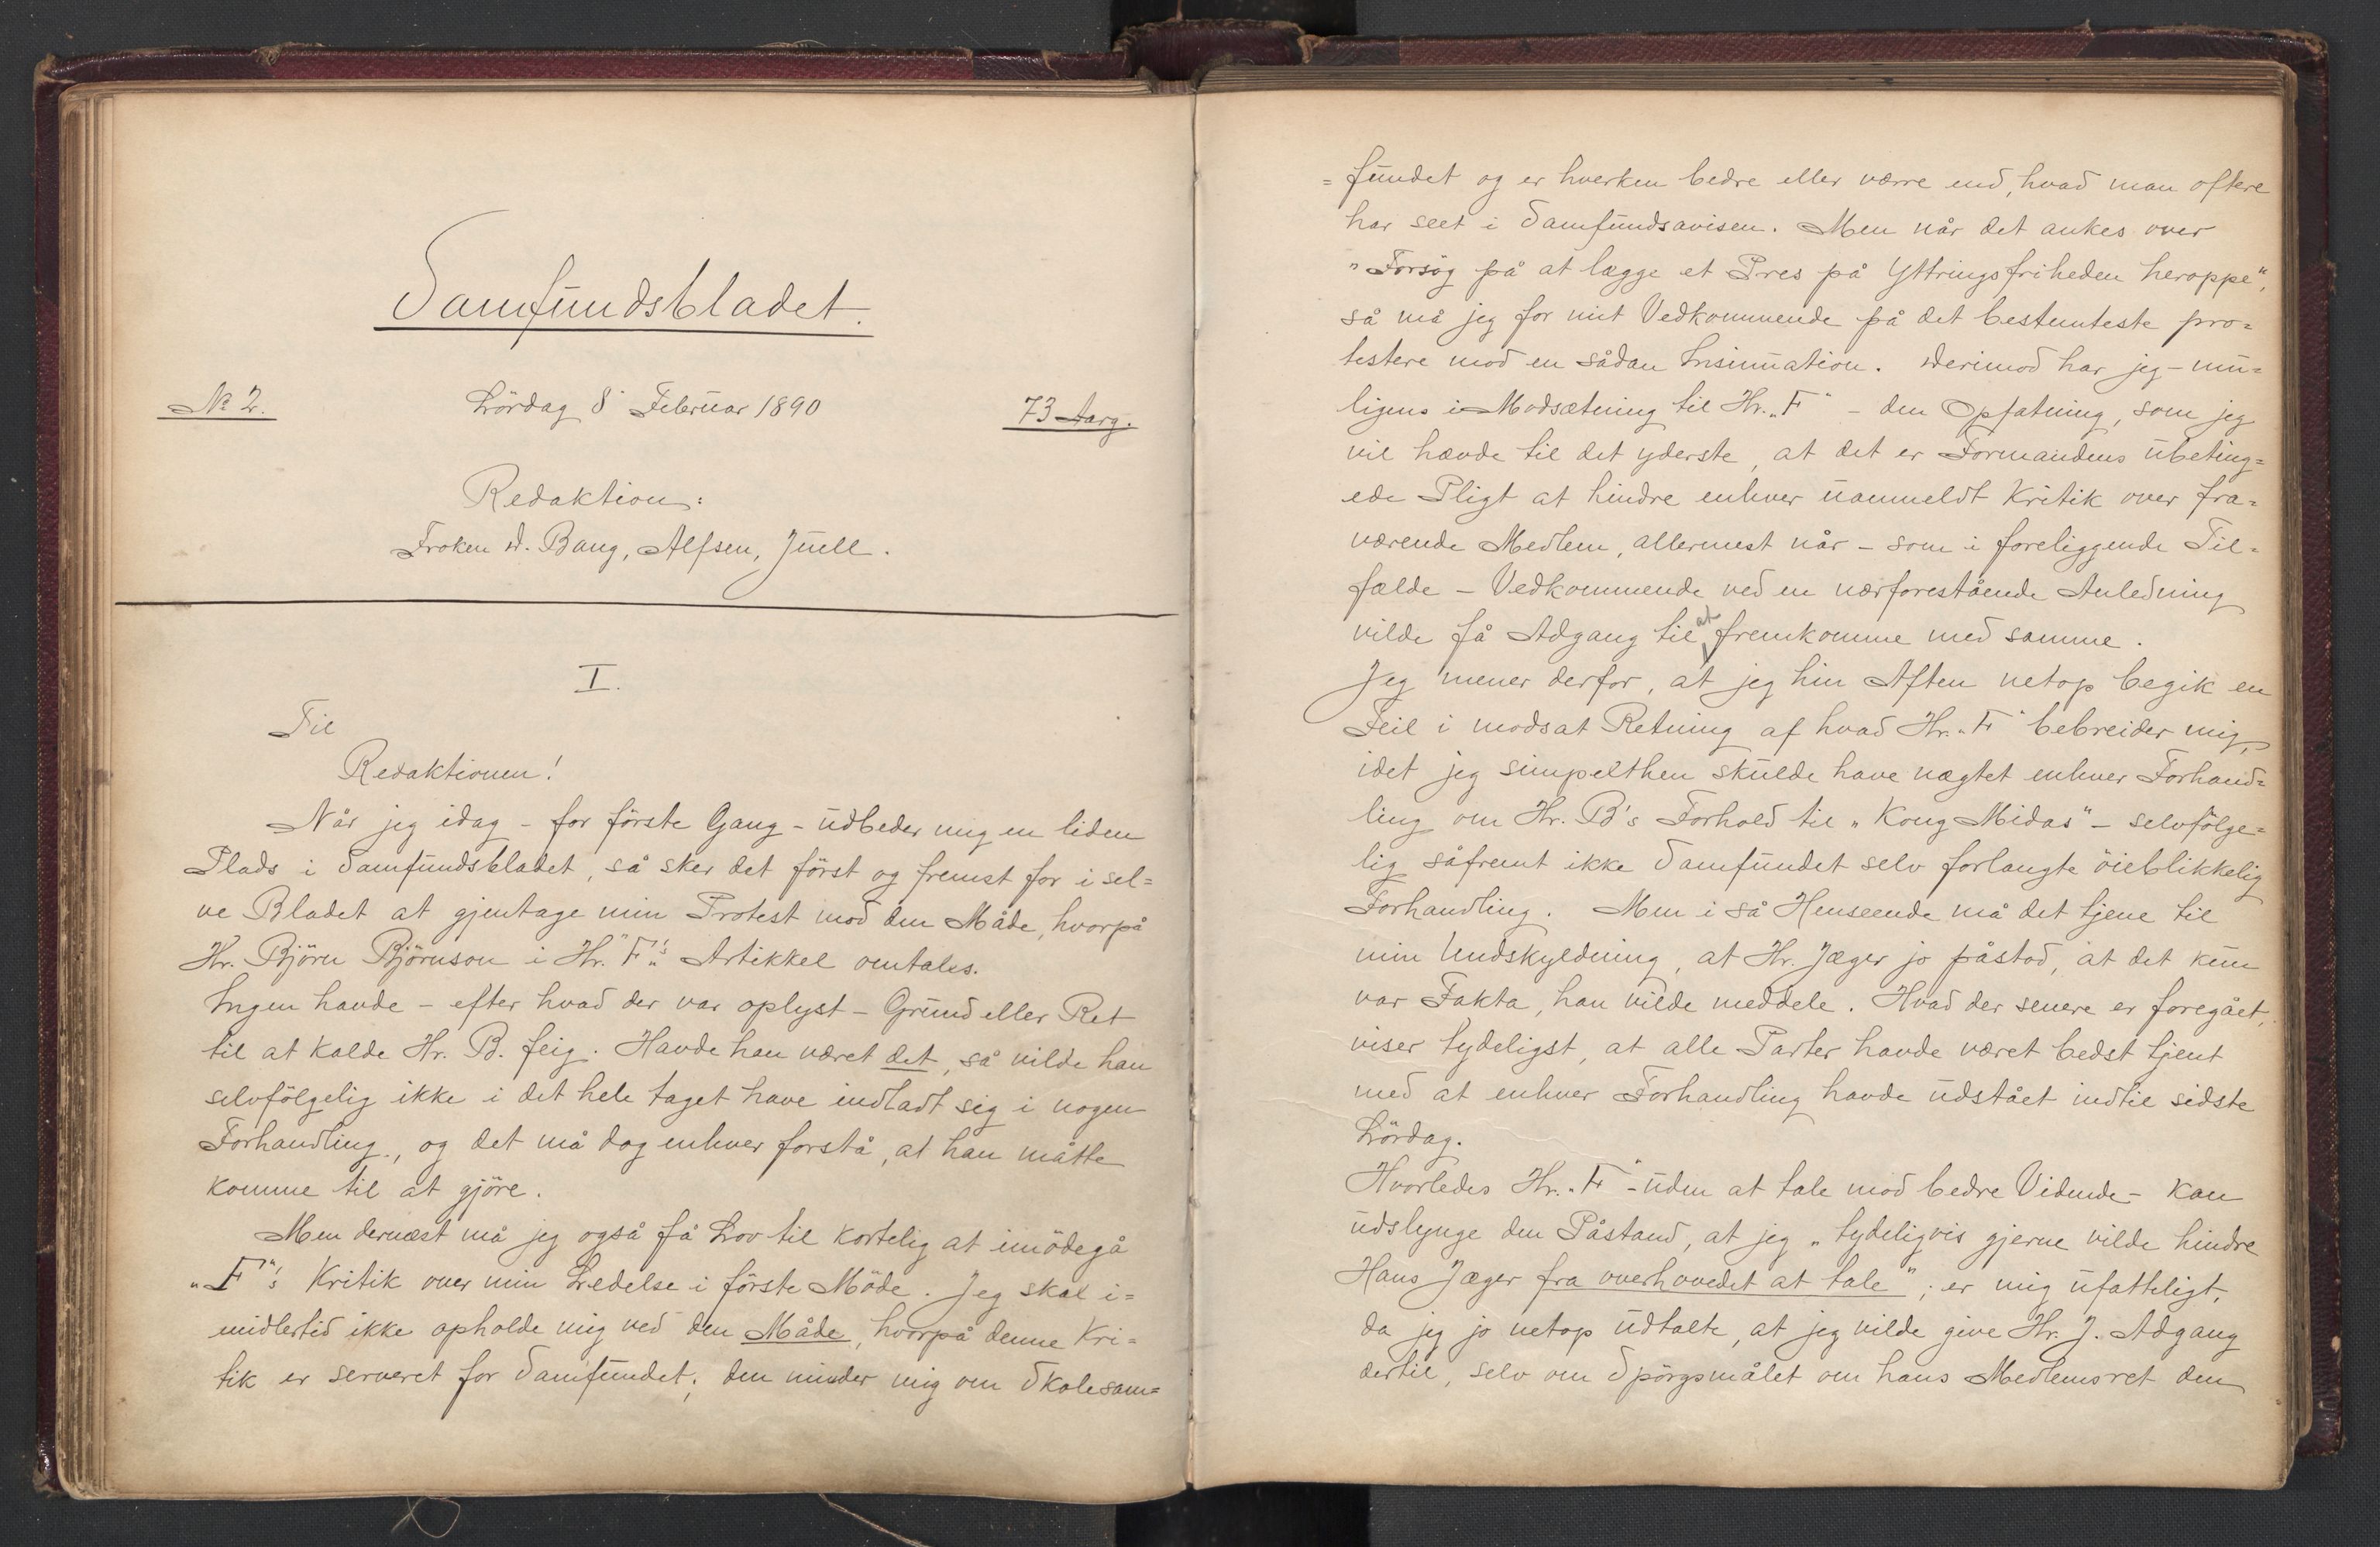 Samfundsbladet.
No 2.
Lördag 8 Februar 1890
73 Aarg.
Redaktion:
Frøken D. Bang, Alfsen, Juell.
I.
Til
Redaktionen!
Når jeg idag - for förste Gang - udbeder mig en liden
Plads i Samfundsbladet, så sker det först og fremst for i sel=
ve Bladet at gjentage min Protest mod den Måde, hvorpå
Hr. Björn Björnson i Hr. "F"'s Artikkel omtales.
Ingen havde - efter hvad der var oplyst - Grund eller Ret
til at kalde Hr. B. feig. Havde han været det, så vilde han
selvfölgelig ikke i det hele taget have indladt sig i nogen
Forhandling, og det må dog enhver forstå, at han måtte
komme til at gjöre.
Men dernæst må jeg også få Lov til kortelig at imödegå
"F"'s Kritik over min Ledelse i förste Möde. Jeg skal i=
midlertid ikke opholde mig ved den Måde, hvorpå denne Kri=
tik er serveret for Samfundet; den minder mig om Skolesam=
=fundet og er hverken bedre eller værre end, hvad man oftere
har seet i Samfundsavisen. Men når det ankes over
"Forsög på at lægge et Pres på Yttringsfriheden heroppe",
så må jeg for mit Vedkommende på det bestemteste pro=
testere mod en sådan Insinuation. Derimod har jeg - mu=
ligens i Modsætning til Hr. "F" - den Opfatning, som jeg
vil hævde til det yderste, at det er Formandens ubeting=
ede Pligt at hindre enhver uanmeldt Kritik over fra=
værende Medlem, allermest når - som i foreliggende Til=
fælde - Vedkommende ved en nærforestående Anledning
vilde få Adgang til at fremkomme med samme.
Jeg mener derfor, at jeg hin Aften netop begik en
Feil i modsat Retning af hvad Hr. "F" bebreider mig,
idet jeg simpelthen skulde have nægtet enhver Forhand=
ling om Hr. B's Forhold til "Kong Midas" - selvfölge=
lig såfremt ikke Samfundet selv forlangte öieblikkelig
Forhandling. Men i så Henseende må det tjene til
min Undskyldning, at Hr. Jæger jo påstod, at det kun
var Fakta, han vilde meddele. Hvad der senere er foregået,
viser tydeligst, at alle Parter havde været bedst tjent
med at enhver Forhandling havde udstået indtil sidste
Lördag.
Hvorledes Hr. "F" - uden at tale mod bedre Vidende - kan
udslynge den Påstand, at jeg "tydeligvis gjerne vilde hindre
Hans Jæger fra overhovedet at tale"; er mig ufatteligt,
da jeg jo netop udtalte, at jeg vilde give Hr. J. Adgang
dertil, selv om Spörgsmålet om hans Medlemsret den